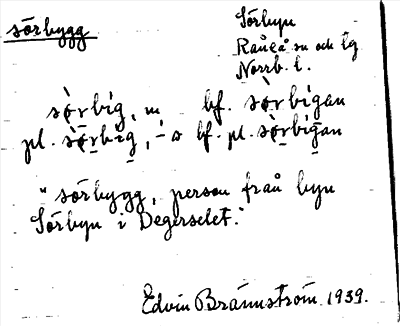 sörbygg
Sörbyn
Råneå sn och tg
Norrb. l.
sọ̈̀rbig, m bf. sọ̈̀rbigan
pl. sọ̈̀rbig, -a bf. pl. sọ̈̀rbigan
"sörbygg, person från byn
Sörbyn i Degerselet."
Edvin Brännström. 1939.